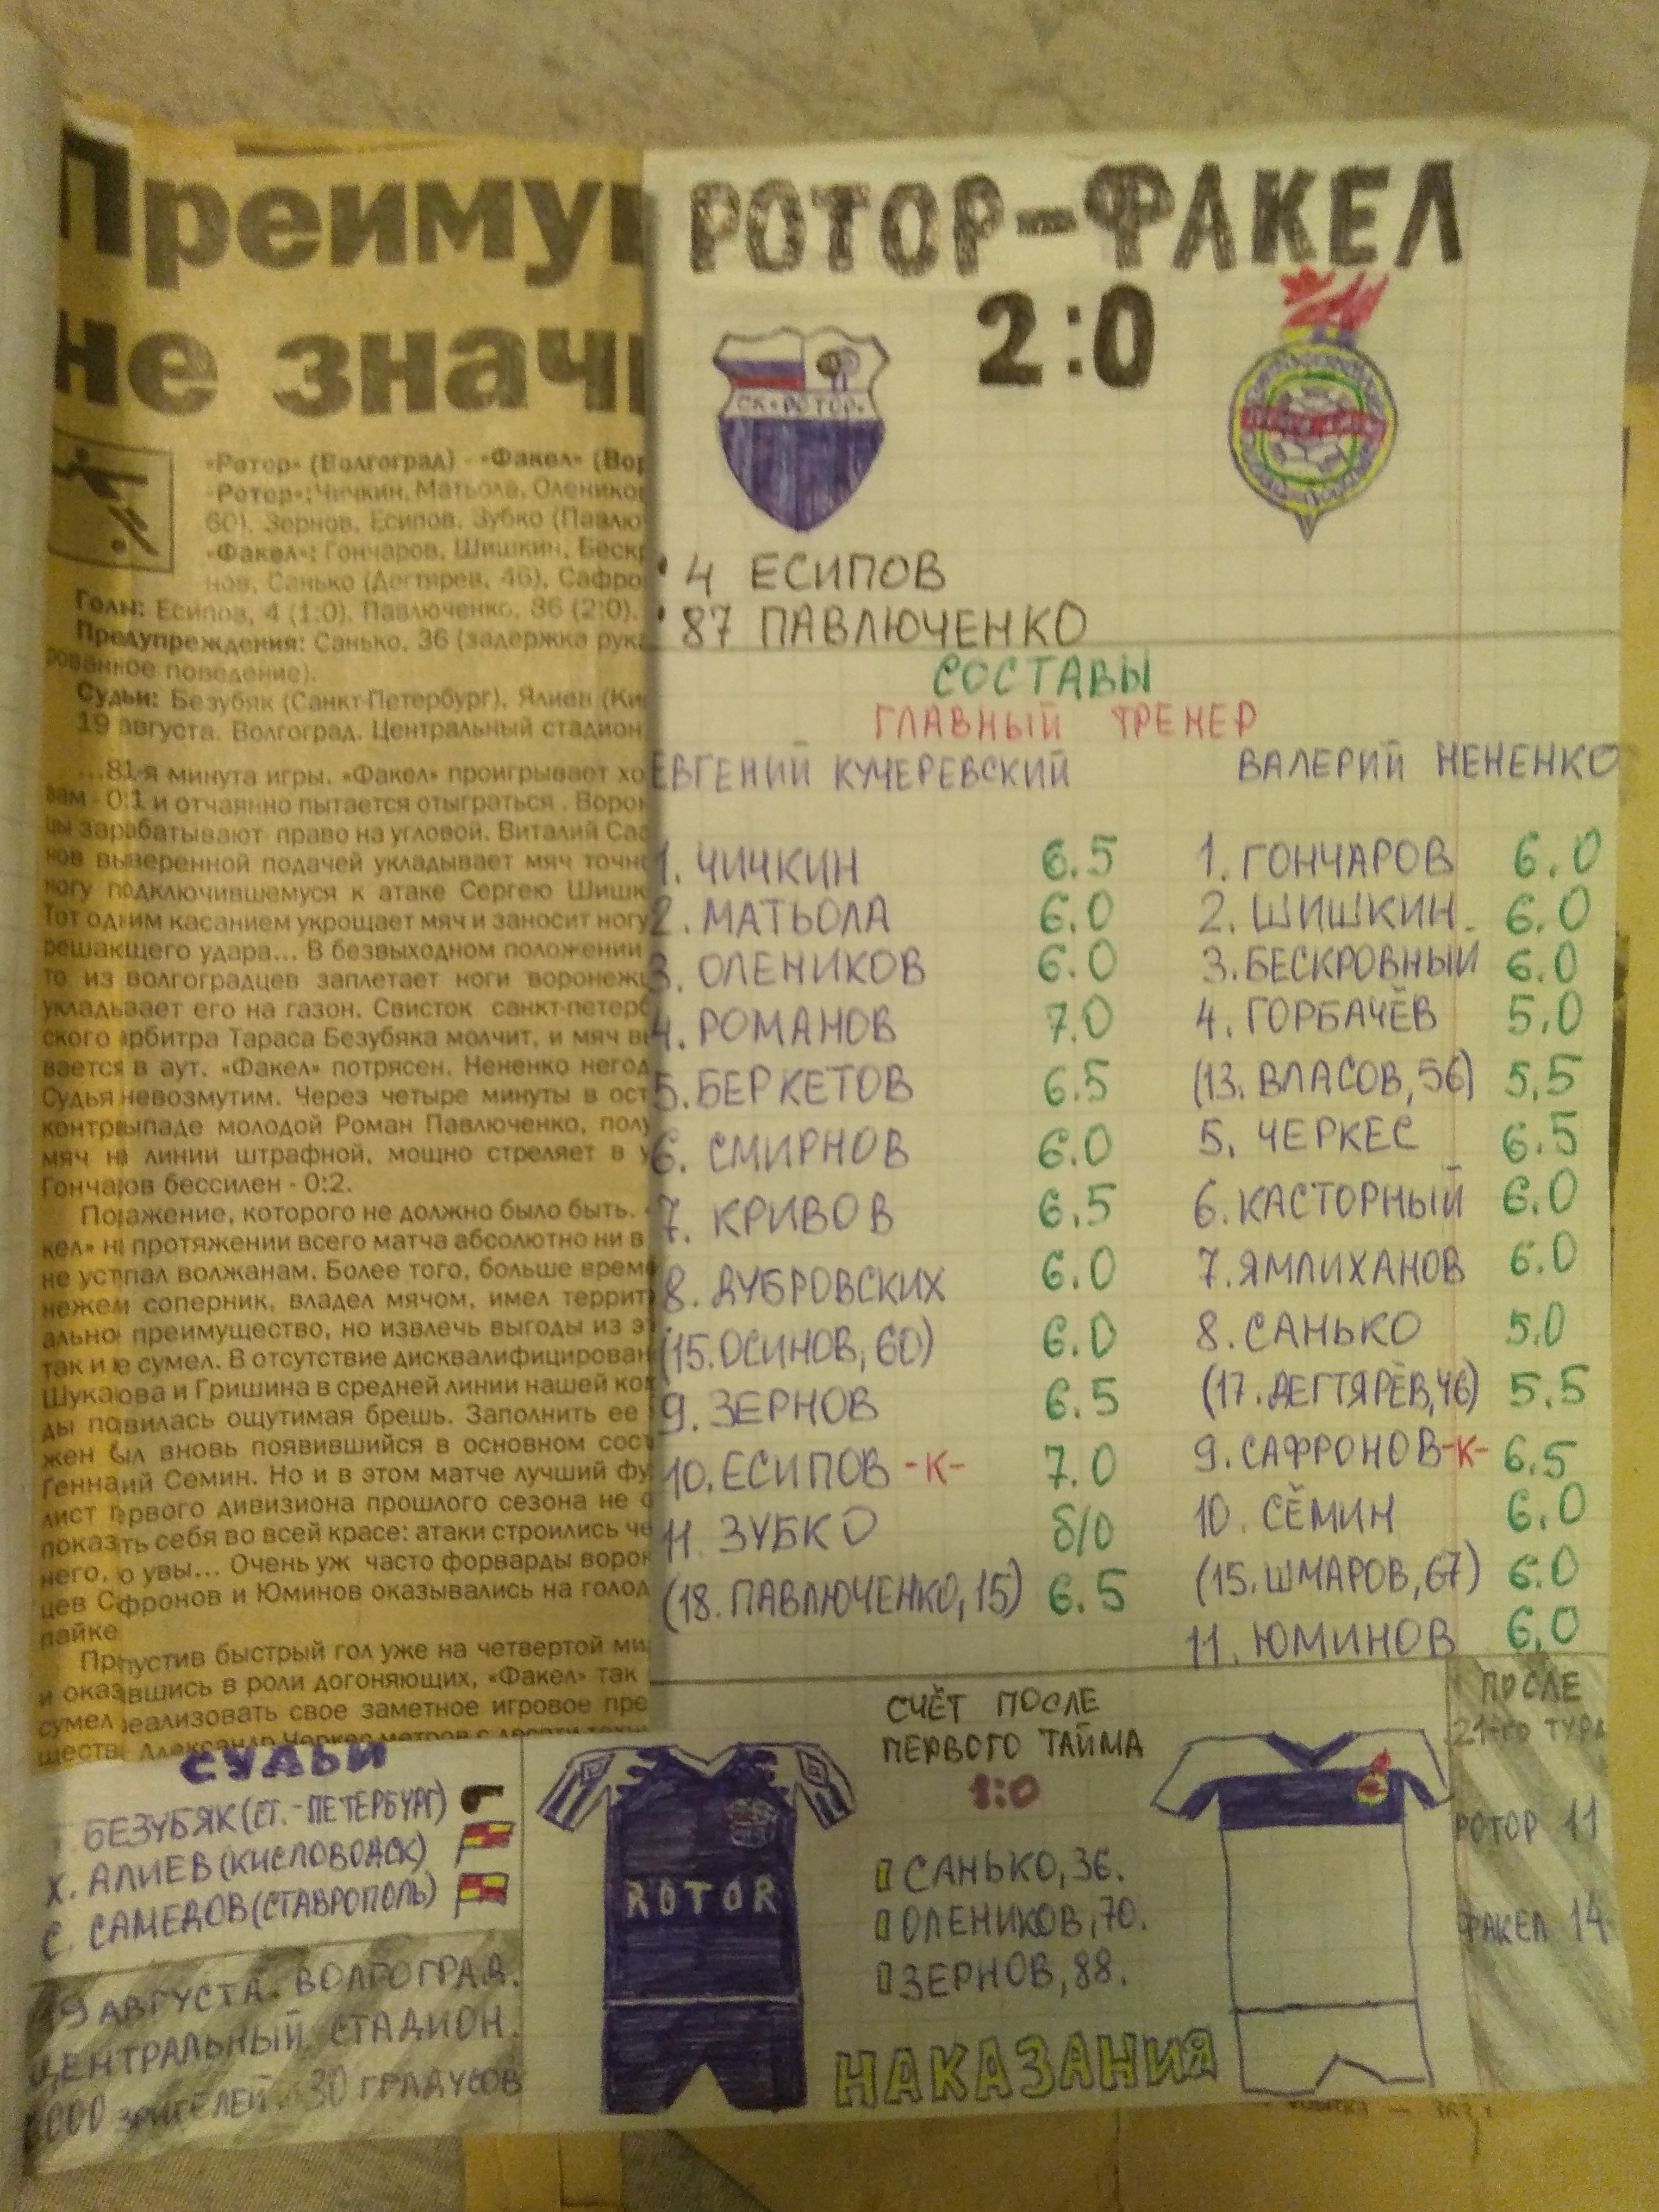 Преиму
не знач
«Ротор» (Волгоград) - «Факел» (Вор
«Ротор»: Чичкин, Матьола, Олеников
60), Зернов, Есипов, Зубко (Павлю
«Факел»: Гончаров, Шишкин, Беск
нов, Санько (Дегтярев, 46), Сафро
Голы: Есипов, 4 (1:0). Павлюченко, 86 (2:0).
Предупреждения: Санько, 36 (задержка рука
рованное поведение).
Судьи: Безубяк (Санкт-Петербург), Ялиев (Ки
19 августа. Волгоград. Центральный стадион.
...81-я минута игры. «Факел» проигрывает хо
вам - 0:1 и отчаянно пытается отыграться. Ворон
цы зарабатывают право на угловой. Виталий Саф
нов выверенной подачей укладывает мяч точно
ногу подключившемуся к атаке Сергею Шишк
Тот одним касанием укрощает мяч и заносит ногу
решающего удара... В безвыходном положении
то из волгоградцев заплетает ноги воронежц
укладывает его на газон. Свисток санкт-петерб
ского арбитра Тараса Безубяка молчит, и мяч вы
вается в аут. «Факел» потрясен. Нененко негод
Судья невозмутим. Через четыре минуты в ост
контрвыпаде молодой Роман Павлюченко, полу
мяч на линии штрафной, мощно стреляет в у
Гончаров бессилен - 0:2.
Поражение, которого не должно было быть.
кел» на протяжении всего матча абсолютно ни в
не уступал волжанам. Более того, больше време
нежели соперник, владел мячом, имел террит
ально преимущество, но извлечь выгоды из э
так и не сумел. В отсутствие дисквалифицирован
Шукакова и Гришина в средней линии нашей ком
ды появилась ощутимая брешь. Заполнить ее
жен был вновь появившийся в основном сост
Геннадий Семин. Но и в этом матче лучший фу
лист первого дивизиона прошлого сезона не с
показать себя во всей красе: атаки строились че
него, но увы... Очень уж часто форварды ворон
цев Сафронов и Юминов оказывались на голод
пайке
Пропустив быстрый гол уже на четвертой ми
и оказавшись в роли догоняющих, «Факел» так
сумел реализовать свое заметное игровое пре
ществ Александр Черкес метров с десяти
РОТОР-ФАКЕЛ
2:0
СК «РОТОР»
4 ЕСИПОВ
87 ПАВЛЮЧЕНКО
СОСТАВЫ
ГЛАВНЫЙ ТРЕНЕР
ЕВГЕНИЙ КУЧЕРЕВСКИЙ
1. ЧИЧКИН 6.5
2. МАТЬОЛА 6.0
3. ОЛЕНИКОВ 6.0
4. РОМАНОВ 7.0
5. БЕРКЕТОВ 6.5
6. СМИРНОВ 6.0
7. КРИВОВ 6.5
8. ДУБРОВСКИХ 6.0
(15. ОСИНОВ, 60) 6.0
9. ЗЕРНОВ 6.5
10. ЕСИПОВ -К- 7.0
11. ЗУБКО б/о
(18. ПАВЛЮЧЕНКО, 15) 6.5
ВАЛЕРИЙ НЕНЕНКО
1. ГОНЧАРОВ 6.0
2. ШИШКИН. 6.0
3. БЕСКРОВНЫЙ 6.0
4. ГОРБАЧЁВ 5.0
(13. ВЛАСОВ, 56) 5.5
5. ЧЕРКЕС 6.5
6. КАСТОРНЫЙ 6.0
7. ЯМЛИХАНОВ 6.0
8. САНЬКО 5.0
(17. ДЕГТЯРЁВ, 46) 5.5
9. САФРОНОВ -К- 6.5
10. СЁМИН 6.0
(15. ШМАРОВ, 67) 6.0
11. ЮМИНОВ 6.0
СУДЬИ
БЕЗУБЯК (СТ.-ПЕТЕРБУРГ)
Х. АЛИЕВ (КИСЛОВОДСК)
С. САМЕДОВ (СТАВРОПОЛЬ)
19 АВГУСТА. ВОЛГОГРАД.
ЦЕНТРАЛЬНЫЙ СТАДИОН.
000 ЗРИТЕЛЕЙ. 30 ГРАДУСОВ
ROTOR
СЧЁТ ПОСЛЕ
ПЕРВОГО ТАЙМА
1:0
САНЬКО, 36.
ОЛЕНИКОВ, 70.
ЗЕРНОВ, 88.
НАКАЗАНИЯ
ПОСЛЕ
21-ГО ТУРА
РОТОР 11
ФАКЕЛ 14